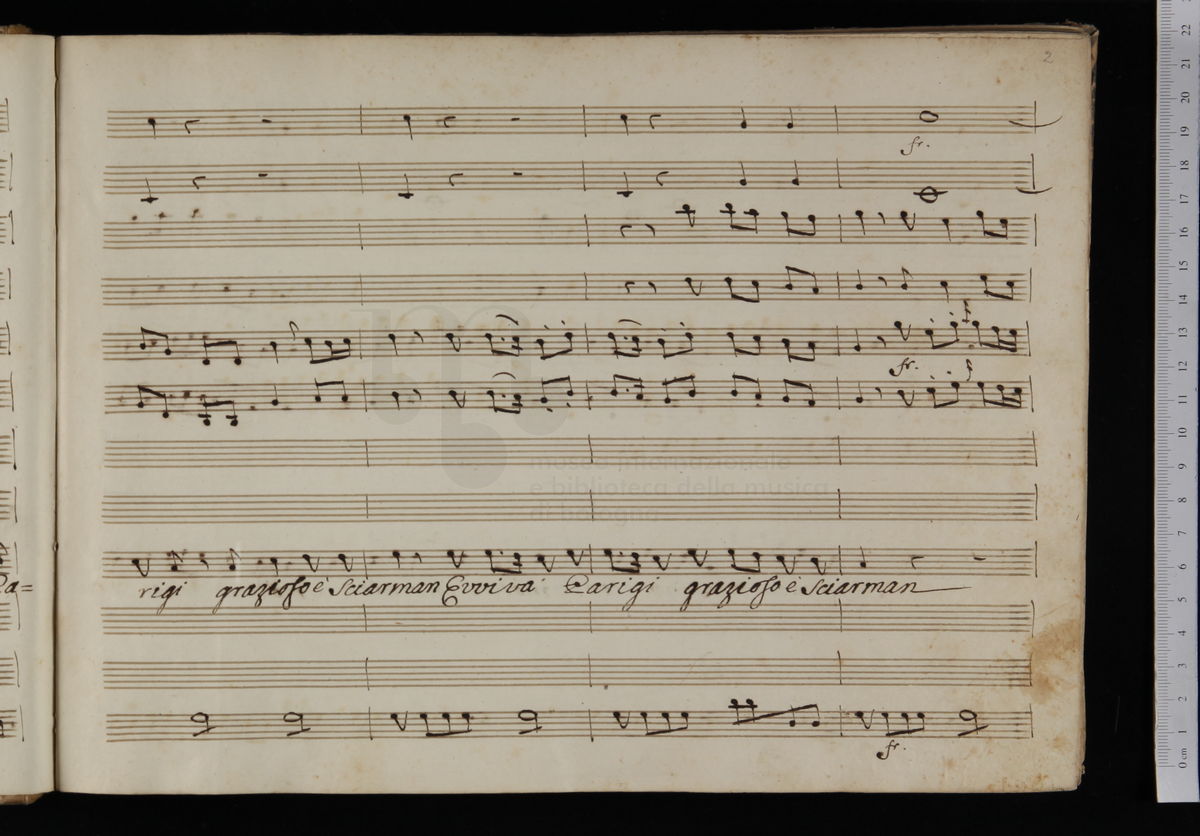 2
fr.
fr.
Pa=
rigi grazioso è Sciarman Evviva Parigi grazioso è Sciarman
fr.
museo internazionale
e biblioteca della musica
di bologna
0 cm 1 2 3 4 5 6 7 8 9 10 11 12 13 14 15 16 17 18 19 20 21 22